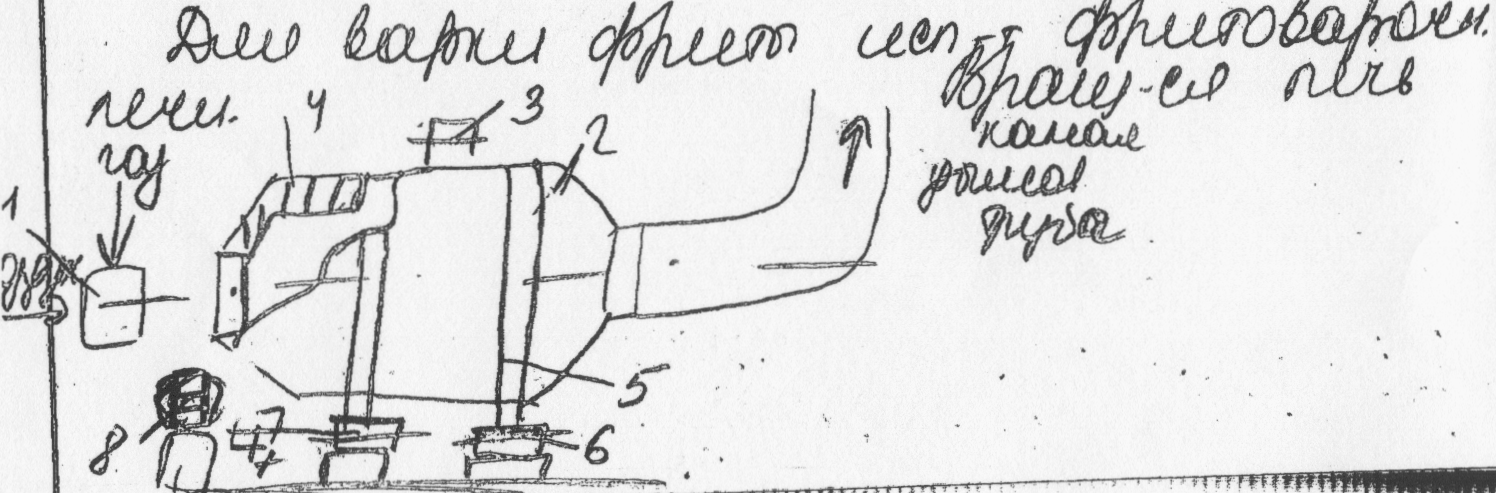 Для варки фритт исп-т фритоварочн.
печи. 4 3 Вращ-ся печь
газ 2 канал
1 дымов
труба
воздух
5
8 7 6